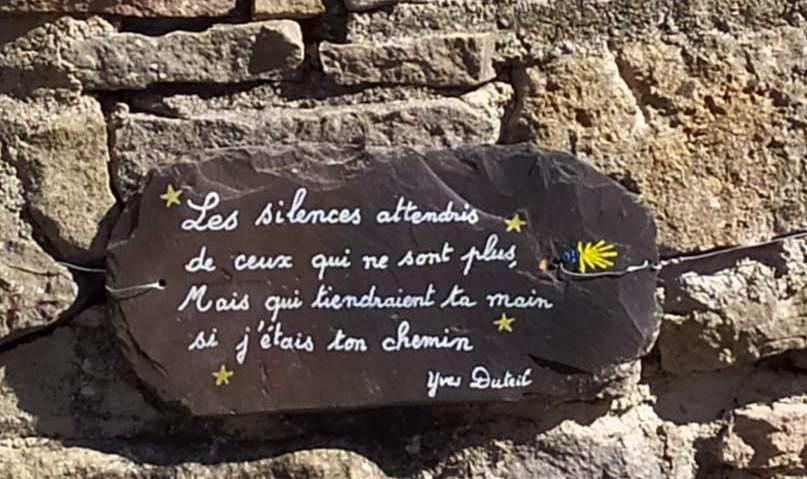 Les silences attendris
de ceux qui ne sont plus,
Mais qui tiendraient ta main
si j'étais ton chemin
Yves Duteil